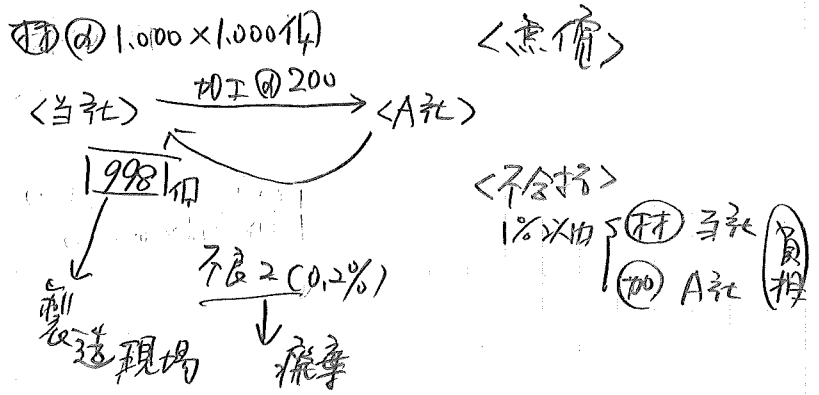 材 @ 1.000×1.000個
<無償>
加工 @ 200
<当社> <A社>
998個
<不合格>
1%以内 材 当社
加 A社
負担
不良2(0.2%)
製造現場
廃棄